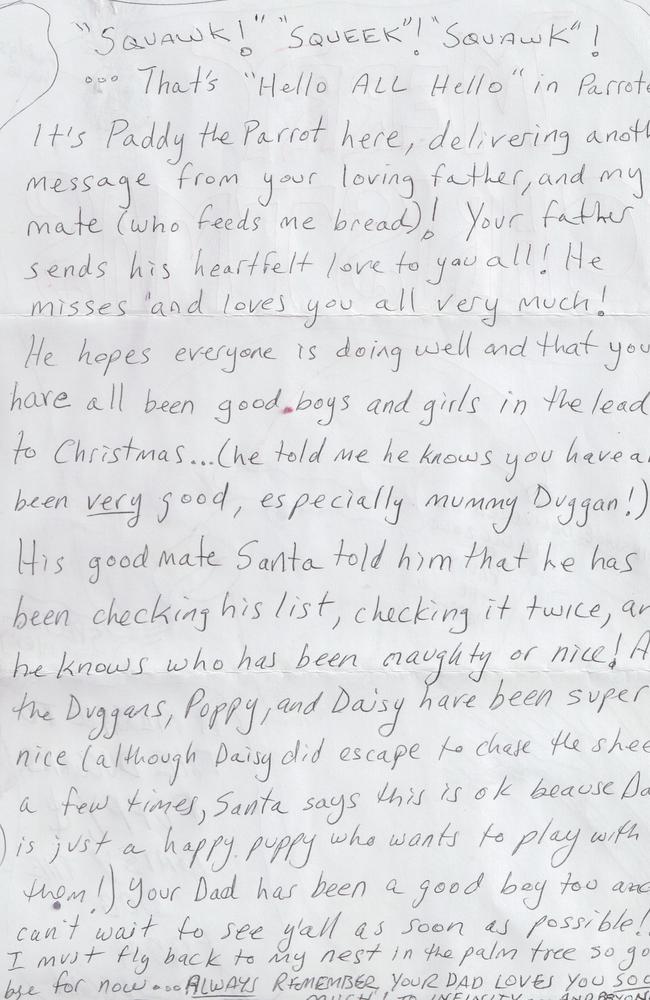 "SQUAWK!" "SQUEEK"! "SQUAWK"!
... That's "Hello ALL Hello" in Parrot
It's Paddy the Parrot here, delivering anoth
message from your loving father, and my
mate (who feeds me bread)! Your father
sends his heartfelt love to you all! He
misses and loves you all very much!
He hopes everyone is doing well and that you
have all been good boys and girls in the lead
to Christmas...(he told me he knows you have a
been very good, especially mummy Duggan!)
His good mate Santa told him that he has
been checking his list, checking it twice, an
he knows who has been naughty or nice! A
the Duggans, Poppy, and Daisy have been super
nice (although Daisy did escape to chase the shee
a few times, Santa says this is ok beause Da
is just a happy puppy who wants to play with
them!) Your Dad has been a good boy too and
can't wait to see y'all as soon as possible!
I must fly back to my nest in the palm tree so go
bye for now...ALWAYS REMEMBER YOUR DAD LOVES YOU SOO
MUCH! TO INFINITY